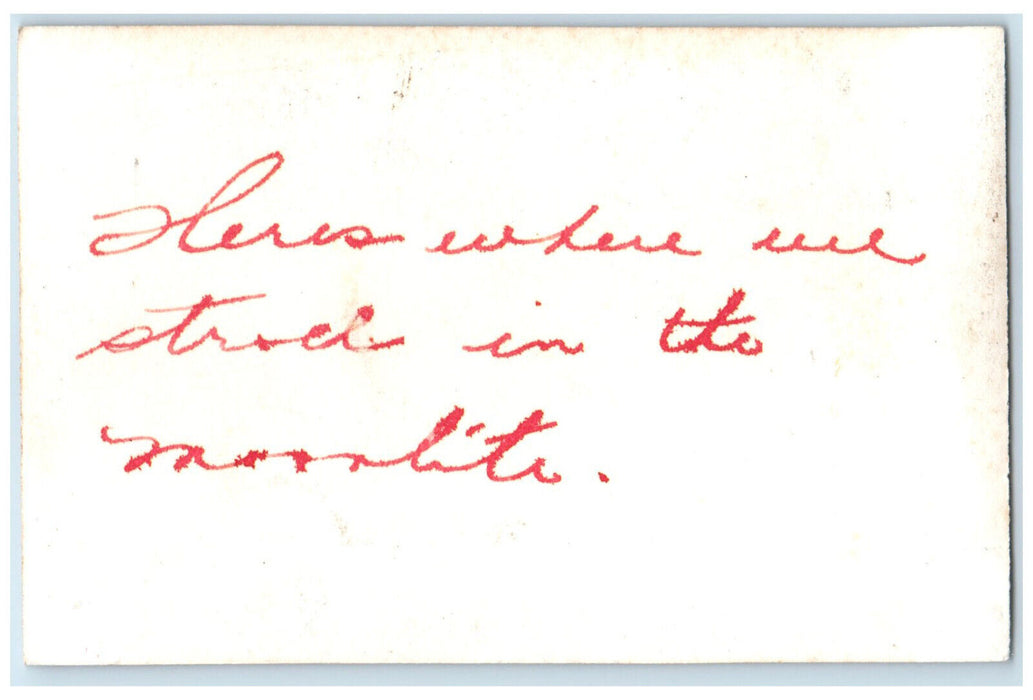 Heres where we
stroll in the
moonlite.